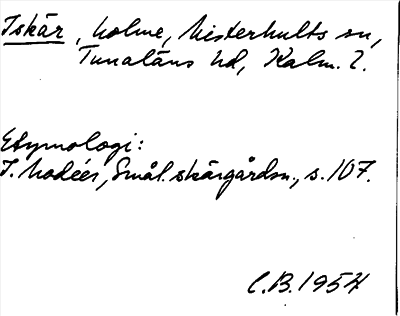 Iskär, holme, Misterhults sn,
Tunaläns hd, Kalm. l.
Etymologi:
I. Modéer, Smål. skärgårdsn., s. 107.
C.B. 1954